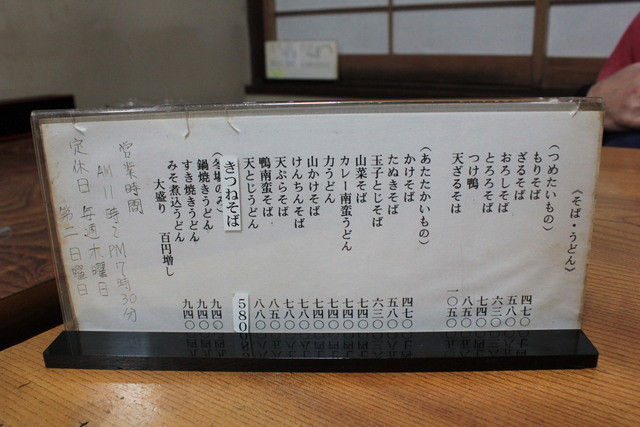 《そば・うどん》
（つめたいもの）
もりそば 四七〇
ざるそば 五八〇
おろしそば 六三〇
とろろそば 七四〇
つけ鴨 八五〇
天ざるそば 一〇五〇
（あたたかいもの）
かけそば 四七〇
たぬきそば 五八〇
玉子とじそば 六三〇
山菜そば 七四〇
カレー南蛮うどん 七四〇
力うどん 七四〇
山かけそば 七四〇
けんちんそば 七八〇
天ぷらそば 七八〇
鴨南蛮そば 八五〇
天とじうどん 八八〇
きつねそば 580
（冬場のみ）
鍋焼きうどん 九四〇
すき焼きうどん 九四〇
みそ煮込うどん 九四〇
大盛り 百円増し
営業時間
AM11時〜PM7時30分
定休日 毎週木曜日
第二日曜日